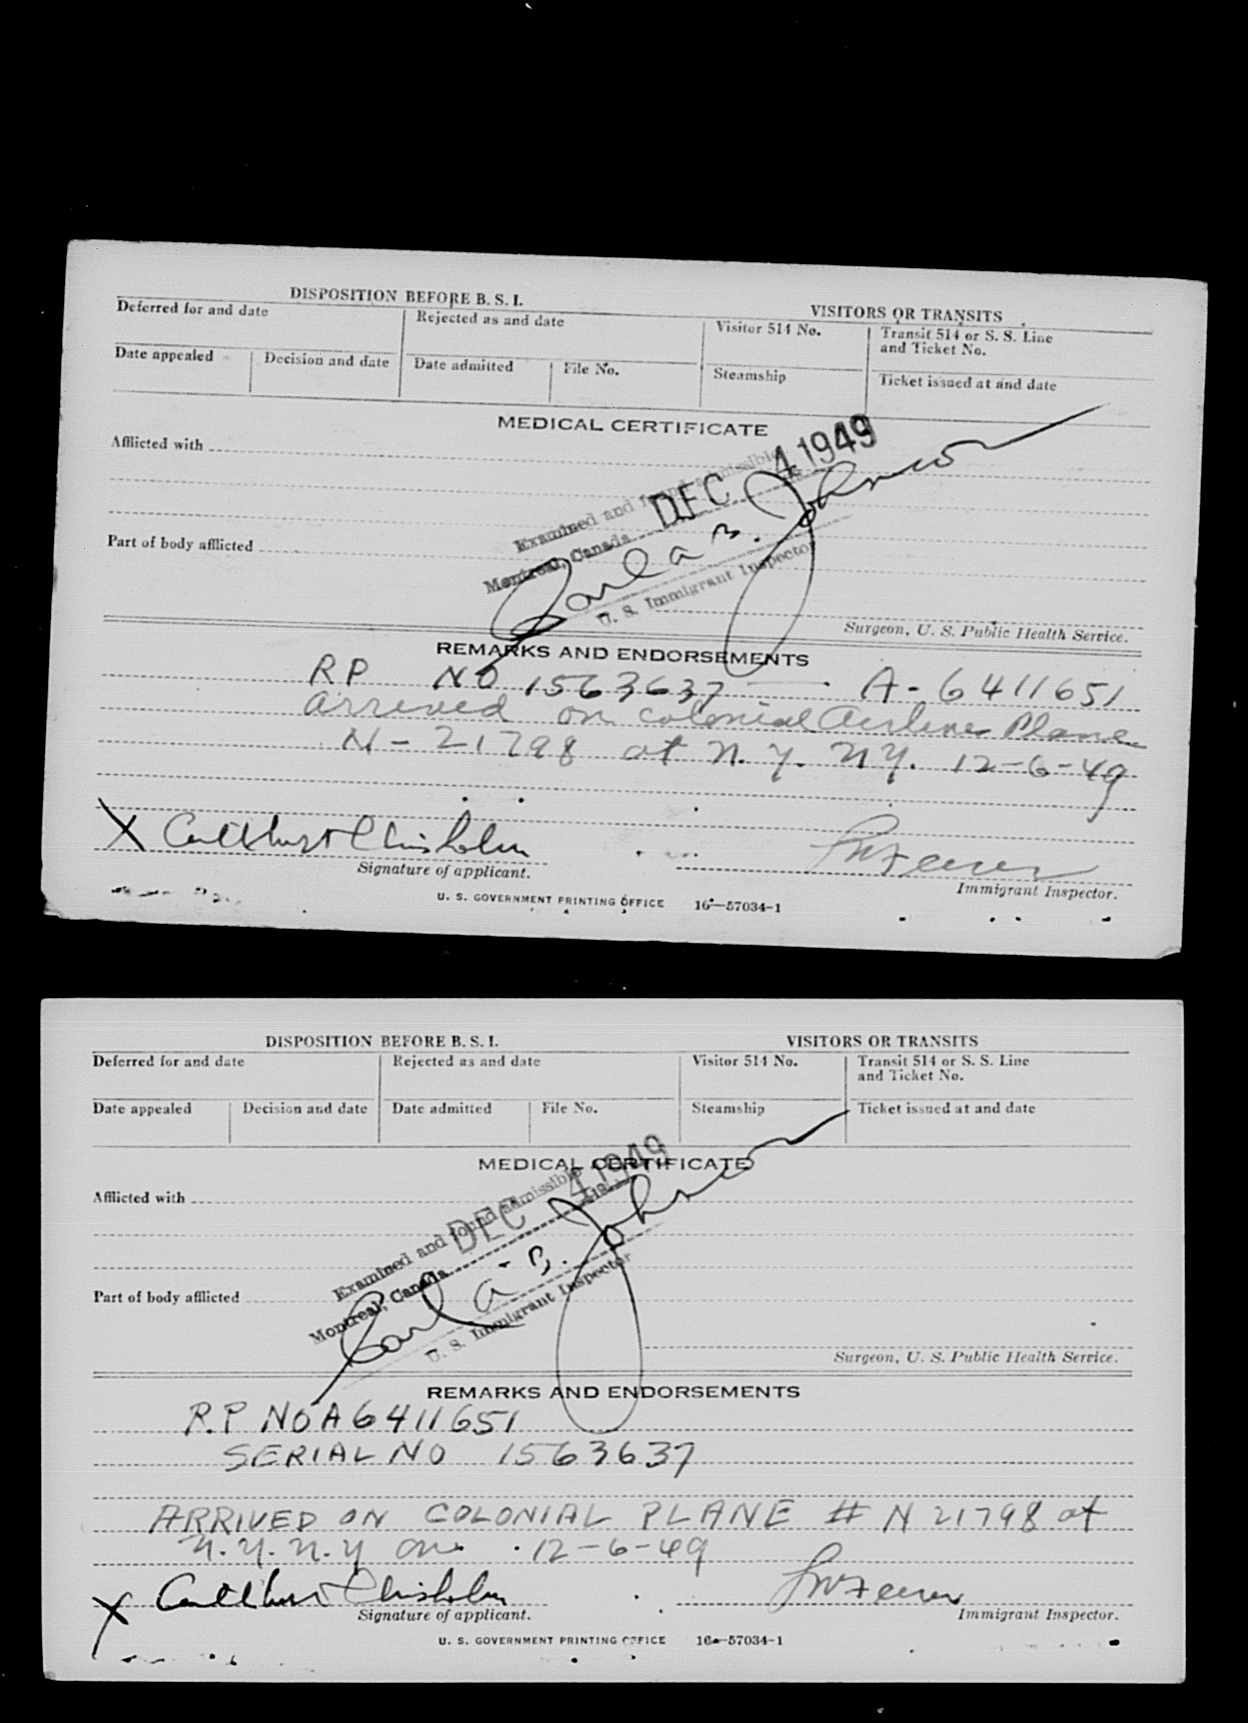 DISPOSITION BEFORE B. S. I.
VISITORS OR TRANSITS
Deferred for and date
Rejected as and date
Visitor 514 No.
Transit 514 or S. S. Line
and Ticket No.
Date appealed
Decision and date
Date admitted
File No.
Steamship
Ticket issued at and date
MEDICAL CERTIFICATE
Afflicted with
Examined and found admissible
DEC 4 1949
Montreal, Canada
Carl a B. Johnson
U. S. Immigrant Inspector
Part of body afflicted
Surgeon, U. S. Public Health Service.
REMARKS AND ENDORSEMENTS
RP NO 1563637 — A-6411651
arrived on colonial Airlines Plane
N-21798 at N.Y. N.Y. 12-6-49
X Chisholm
Signature of applicant.
Immigrant Inspector.
U. S. GOVERNMENT PRINTING OFFICE 16—57034-1
DISPOSITION BEFORE B. S. I.
VISITORS OR TRANSITS
Deferred for and date
Rejected as and date
Visitor 514 No.
Transit 514 or S. S. Line
and Ticket No.
Date appealed
Decision and date
Date admitted
File No.
Steamship
Ticket issued at and date
MEDICAL CERTIFICATE
Afflicted with
Examined and found admissible
DEC 4 1949
Montreal, Canada
Carl a B. Johnson
U. S. Immigrant Inspector
Part of body afflicted
Surgeon, U. S. Public Health Service.
REMARKS AND ENDORSEMENTS
R.P NO A6411651
SERIAL NO 1563637
ARRIVED ON COLONIAL PLANE # N 21798 at
N.Y. N.Y on 12-6-49
X Chisholm
Signature of applicant.
Immigrant Inspector.
U. S. GOVERNMENT PRINTING OFFICE 16—57034-1